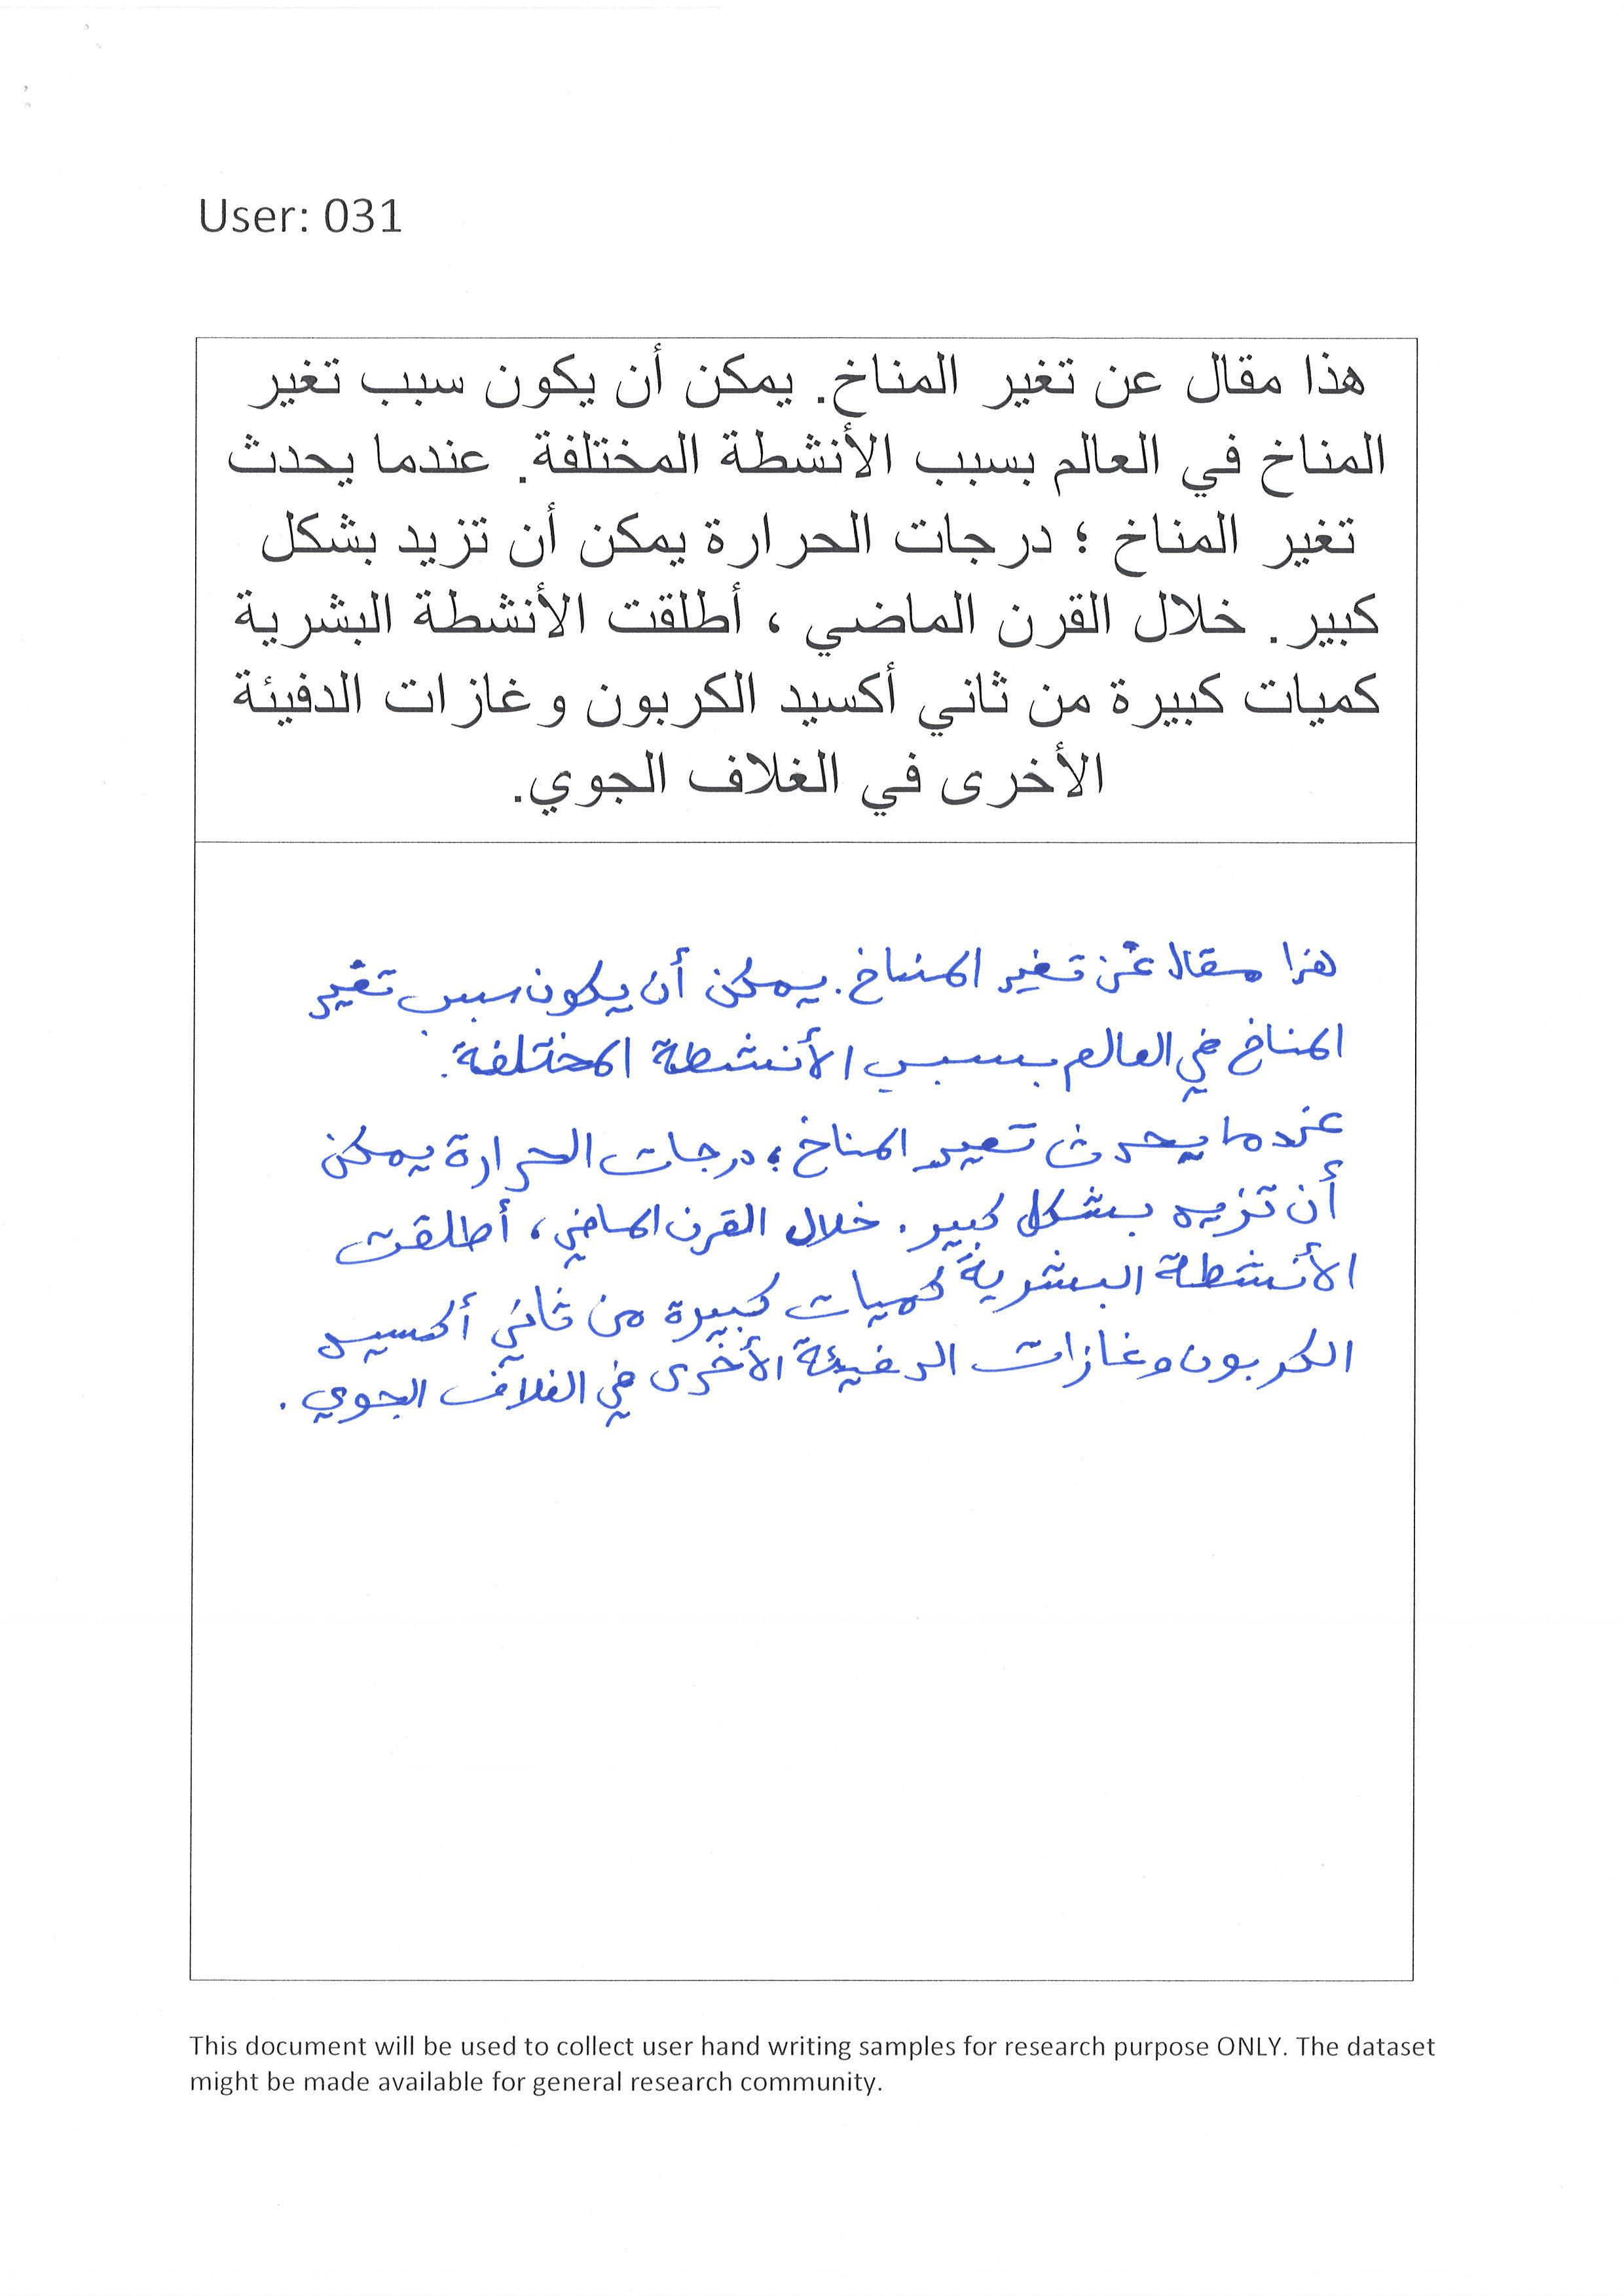 User: 031
هذا مقال عن تغير المناخ. يمكن أن يكون سبب تغير
المناخ في العالم بسبب الأنشطة المختلفة. عندما يحدث
تغير المناخ ؛ درجات الحرارة يمكن أن تزيد بشكل
كبير. خلال القرن الماضي ، أطلقت الأنشطة البشرية
كميات كبيرة من ثاني أكسيد الكربون و غازات الدفيئة
الأخرى في الغلاف الجوي.
هذا مقال عن تغير المناخ. يمكن أن يكون سبب تغير
المناخ في العالم بسبب الأنشطة المختلفة.
عندما يحدث تغير المناخ ؛ درجات الحرارة يمكن
أن تزيد بشكل كبير. خلال القرن الماضي ، أطلقت
الأنشطة البشرية كميات كبيرة من ثاني أكسيد
الكربون و غازات الدفيئة الأخرى في الغلاف الجوي.
This document will be used to collect user hand writing samples for research purpose ONLY. The dataset
might be made available for general research community.